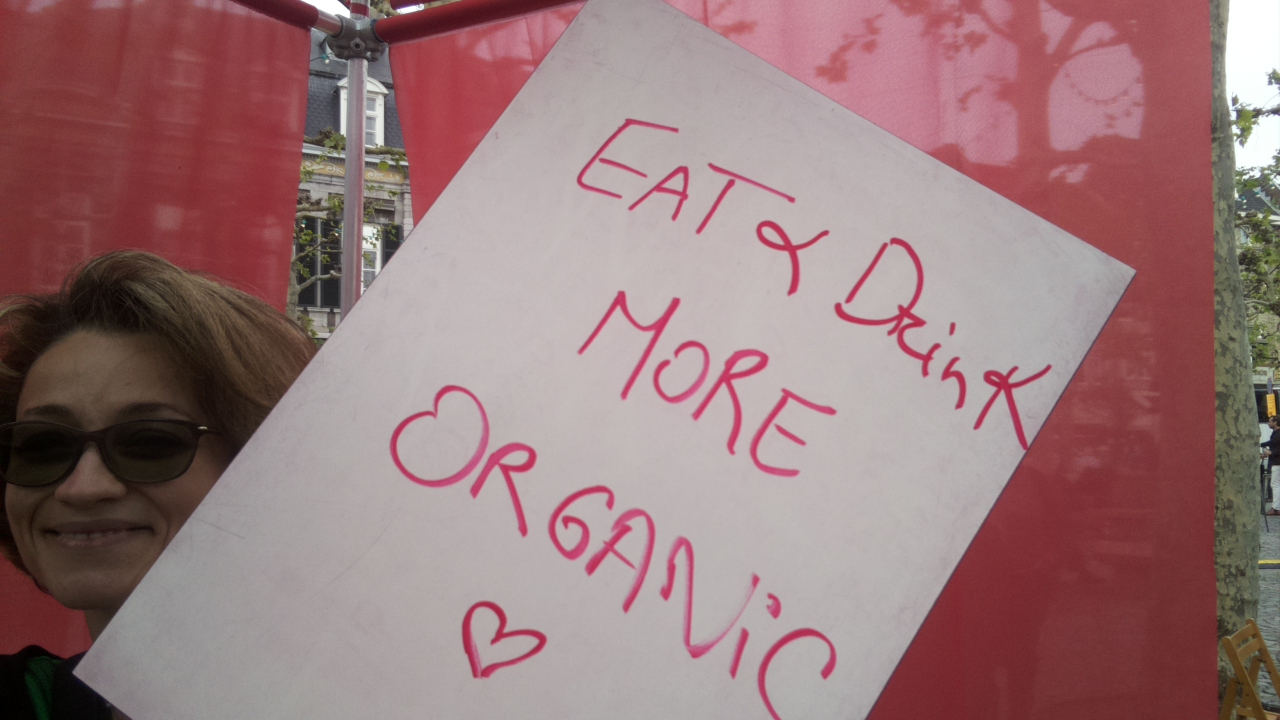 EAT & DrinK
MORE
ORGANiC